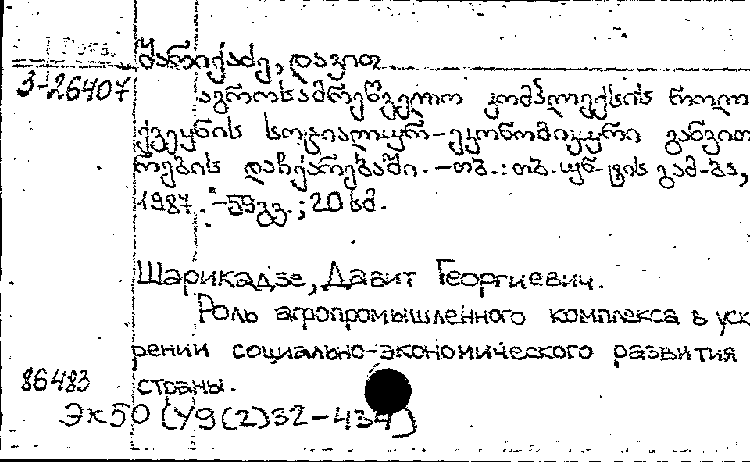 შარიქაძე, დავით.
3-26407
აგროსამრეწველო კომპლექსის როლი
ქვეყნის სოციალურ-ეკონომიკური განვითა
რების დაჩქარებაში. – თბ.: თბ. უნ-ტის გამ-ბა,
1987. – 59გვ.; 20 სმ.
Шарикадзе, Давит Георгиевич.
Роль агропромышленного комплекса в уск
рении социально-экономического развития
86483 страны.
Эк50 (У9(2)32-434)